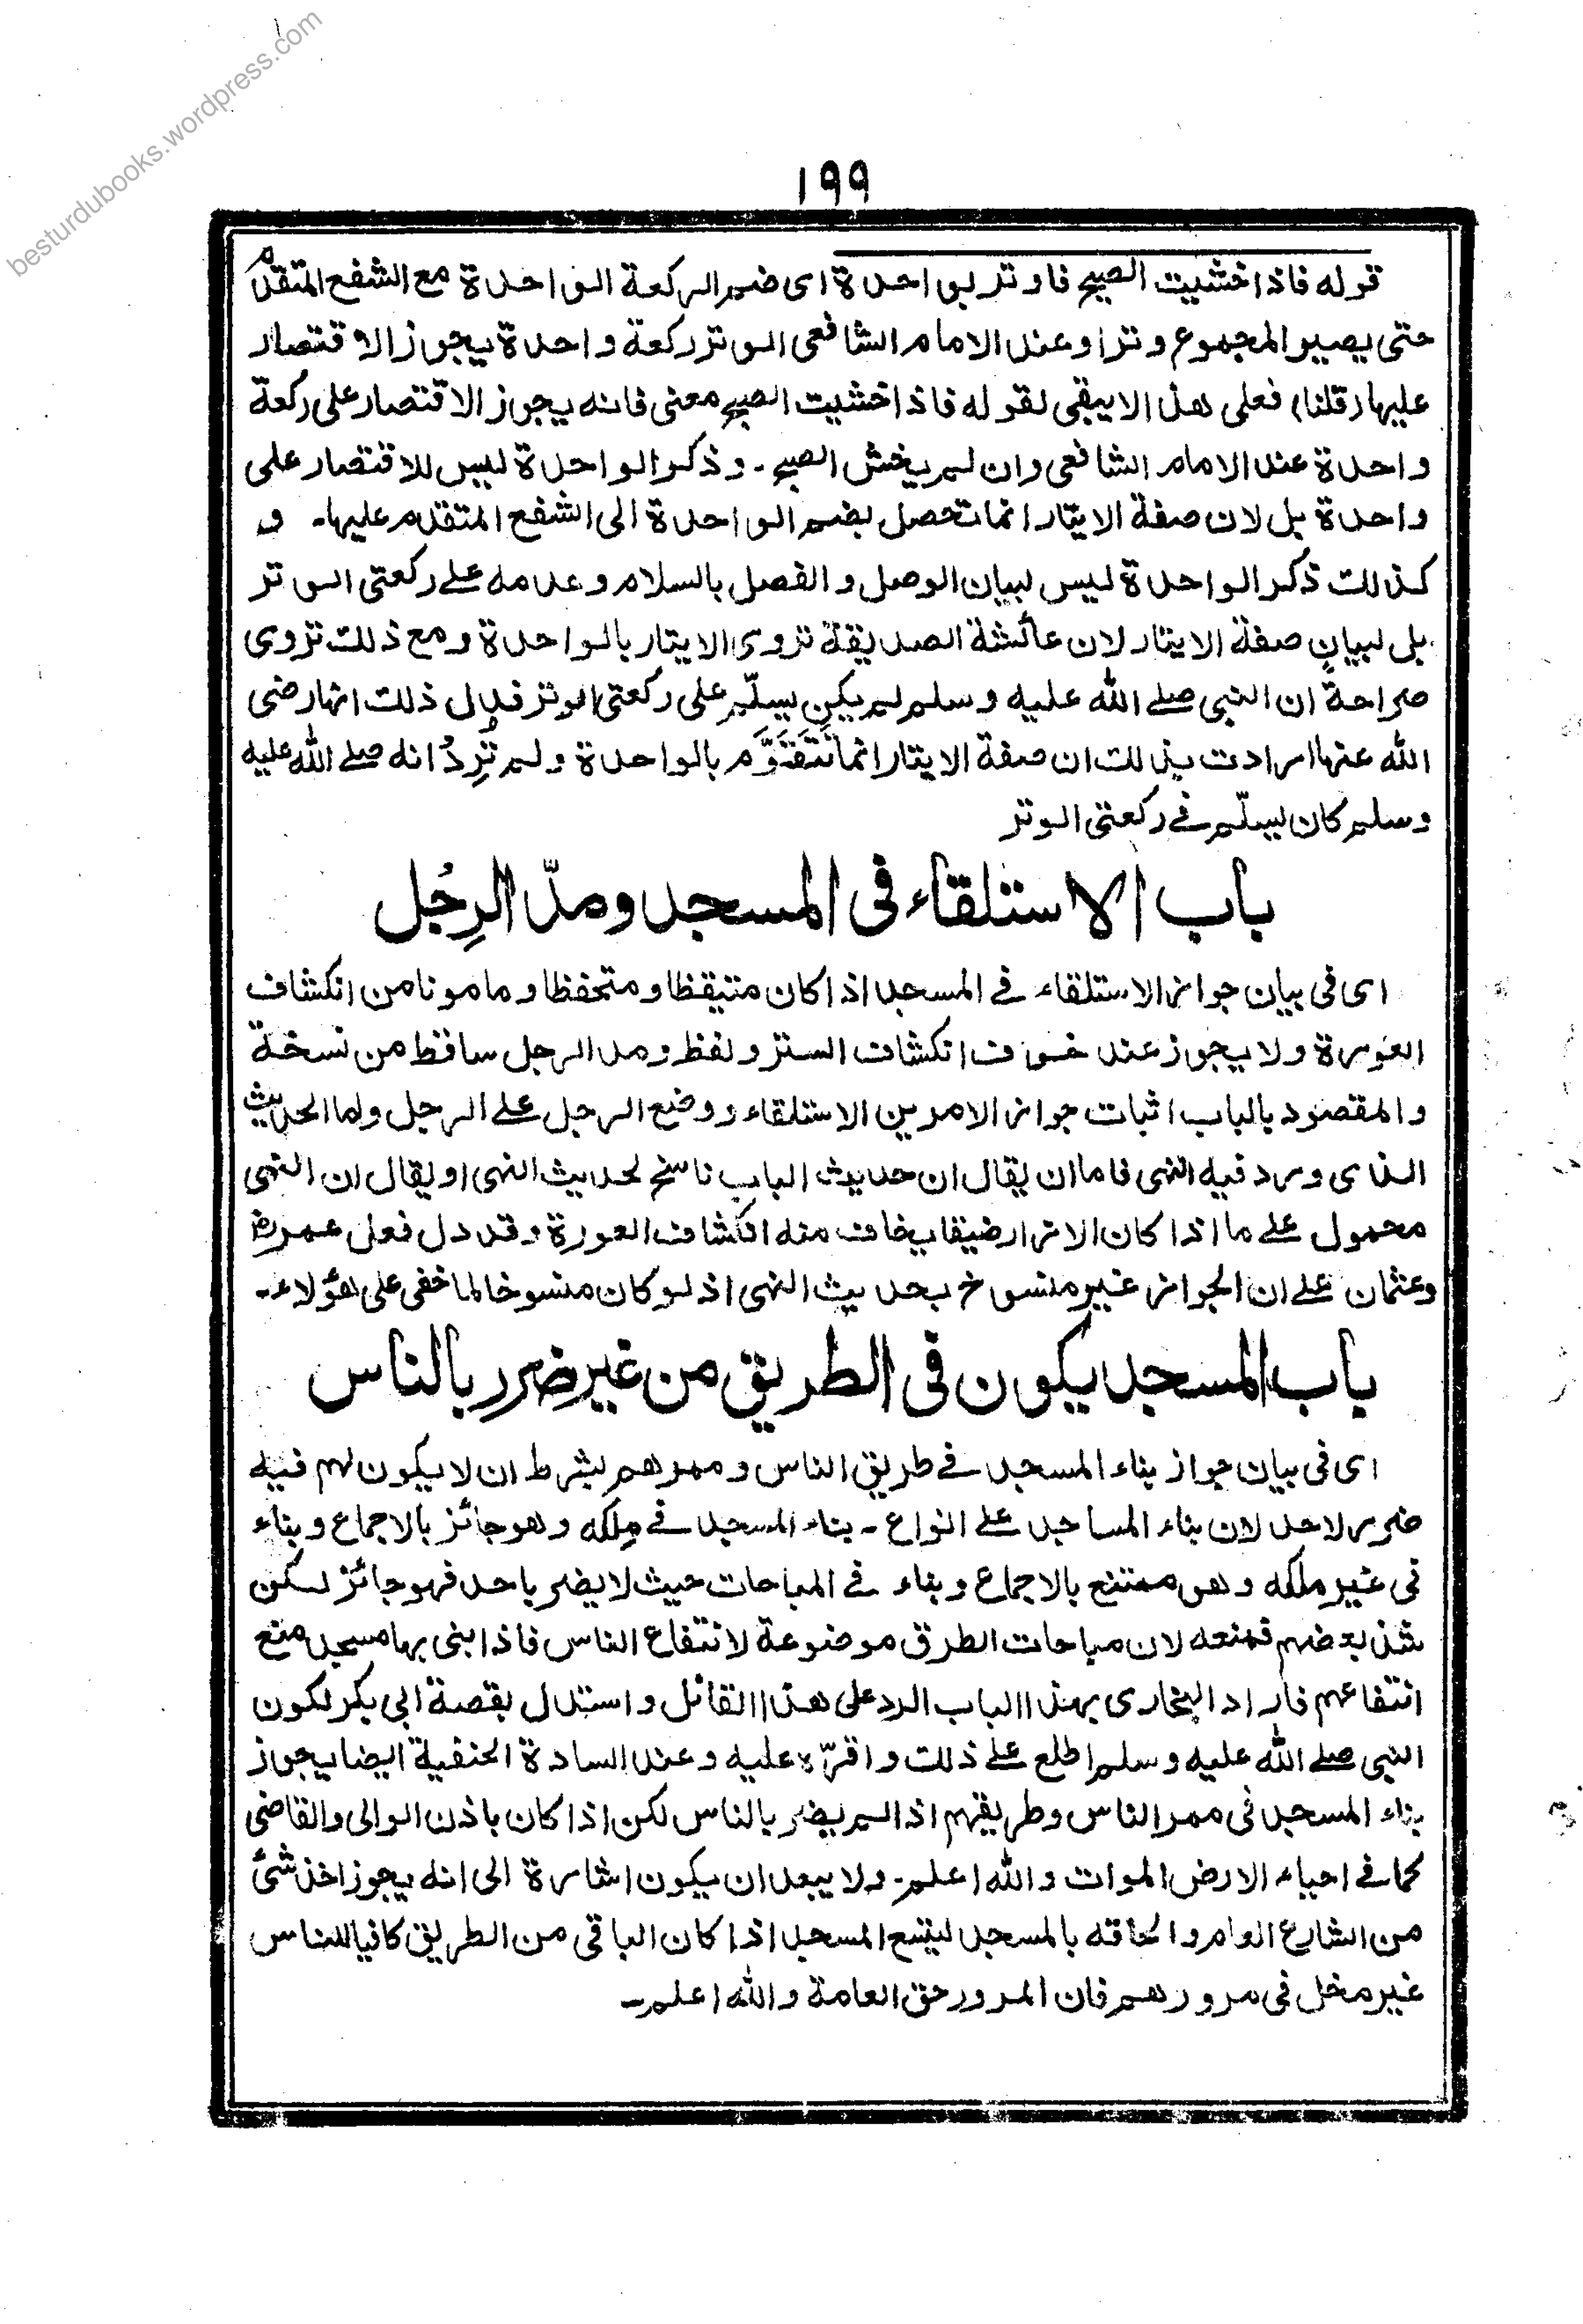 besturdubooks.wordpress.com
١٩٩
قوله فاذا خشيت الصبح فاوتر بواحدة اى ضم الركعة الواحدة مع الشفع المتقدم
حتى يصير المجموع وترا وعند الامام الشافعى الوتر ركعة واحدة يجوز الاقتصار
عليها (قلنا) فعلى هذا لا يبقى لقوله فاذا خشيت الصبح معنى فانه يجوز الاقتصار على ركعة
واحدة عند الامام الشافعى وان لم يخش الصبح۔ وذكر الواحدة ليس للاقتصار على
واحدة بل لان صفة الايتار انما تحصل بضم الواحدة الى الشفع المتقدم عليها۔ و
كذلك ذكر الواحدة ليس لبيان الوصل والفصل بالسلام وعدمه علے ركعتى الوتر
بل لبيان صفة الايتار لان عائشة الصديقة تروى الايتار بالواحدة ومع ذلك تروى
صراحةً ان النبى صلے الله عليه وسلم لم يكن يسلّم على ركعتى الوتر فدل ذلك انها رضى
الله عنها ارادت بذلك ان صفة الايتار انما تَتَقَوَّم بالواحدة ولم تُرِدْ انه صلے الله عليه
وسلم كان يسلّم فے ركعتى الوتر
باب الاستلقاء فى المسجد ومدّ الرِجُل
اى فى بيان جواز الاستلقاء فے المسجد اذا كان متيقظا ومتحفظا ومامونا من انكشاف
العورة ولا يجوز عند خوف انكشاف الستر ولفظ ومد الرجل ساقط من نسخة
والمقصود بالباب اثبات جواز الامرين الاستلقاء ووضع الرجل علے الرجل واما الحديث
الذى ورد فيه النهى فاما ان يقال ان حديث الباب ناسخ لحديث النهى او يقال ان النهى
محمول علے ما اذا كان الازار ضيقا يخاف منه انكشاف العورة وقد دل فعل عمرؓ
وعثمان علے ان الجواز غير منسوخ بحديث النهى اذ لو كان منسوخا لما خفى على هؤلاء۔
باب المسجد يكون فى الطريق من غير ضررٍ بالناس
اى فى بيان جواز بناء المسجد فے طريق الناس وممرهم بشرط ان لا يكون لهم فيه
ضرر لاحد لان بناء المساجد علے انواع ۔ بناء المسجد فے مِلكه وهو جائز بالاجماع وبناء
فى غير ملكه وهو ممتنع بالاجماع وبناء فے المباحات حيث لا يضر باحد فهو جائز لكن
شذ بعضهم فمنعه لان مباحات الطرق موضوعة لانتفاع الناس فاذا بنى بها مسجد منع
انتفاعهم فاراد البخارى بهذا الباب الرد على هذا القائل واستدل بقصة ابى بكر لكون
النبى صلے الله عليه وسلم اطلع علے ذلك واقرّه عليه وعند السادة الحنفية ايضا يجوز
بناء المسجد فى ممر الناس وطريقهم اذا لم يضر بالناس لكن اذا كان باذن الوالى والقاضى
كما فے احياء الارض الموات والله اعلم۔ ولا يبعد ان يكون اشارة الى انه يجوز اخذ شئ
من الشارع العام والحاقه بالمسجد ليتسع المسجد اذا كان الباقى من الطريق كافيا للناس
غير مخل فى مرورهم فان المرور حق العامة والله اعلم۔